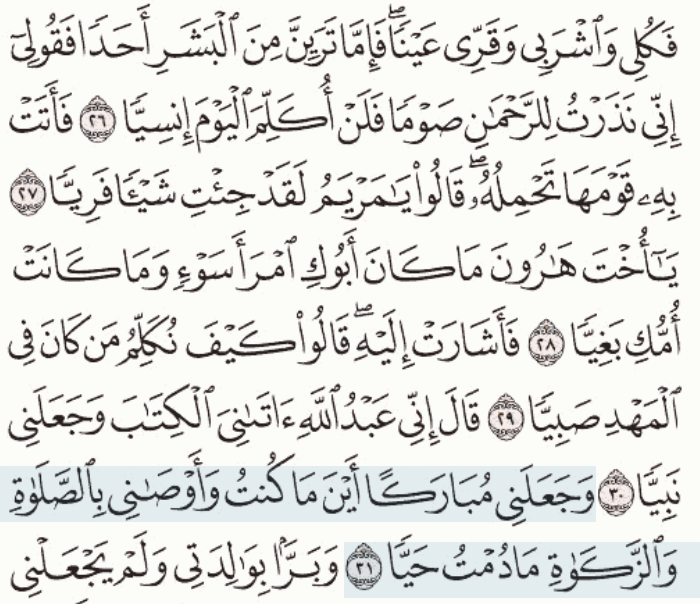 فَكُلِى وَٱشْرَبِى وَقَرِّى عَيْنًۭا ۖ فَإِمَّا تَرَيِنَّ مِنَ ٱلْبَشَرِ أَحَدًۭا فَقُولِىٓ
إِنِّى نَذَرْتُ لِلرَّحْمَـٰنِ صَوْمًۭا فَلَنْ أُكَلِّمَ ٱلْيَوْمَ إِنسِيًّۭا ٢٦ فَأَتَتْ
بِهِۦ قَوْمَهَا تَحْمِلُهُۥ ۖ قَالُوا۟ يَـٰمَرْيَمُ لَقَدْ جِئْتِ شَيْـًۭٔا فَرِيًّۭا ٢٧
يَـٰٓأُخْتَ هَـٰرُونَ مَا كَانَ أَبُوكِ ٱمْرَأَ سَوْءٍۢ وَمَا كَانَتْ
أُمُّكِ بَغِيًّۭا ٢٨ فَأَشَارَتْ إِلَيْهِ ۖ قَالُوا۟ كَيْفَ نُكَلِّمُ مَن كَانَ فِى
ٱلْمَهْدِ صَبِيًّۭا ٢٩ قَالَ إِنِّى عَبْدُ ٱللَّهِ ءَاتَىٰنِىَ ٱلْكِتَـٰبَ وَجَعَلَنِى
نَبِيًّۭا ٣٠ وَجَعَلَنِى مُبَارَكًا أَيْنَ مَا كُنتُ وَأَوْصَـٰنِى بِٱلصَّلَوٰةِ
وَٱلزَّكَوٰةِ مَا دُمْتُ حَيًّۭا ٣١ وَبَرًّۢا بِوَٰلِدَتِى وَلَمْ يَجْعَلْنِى